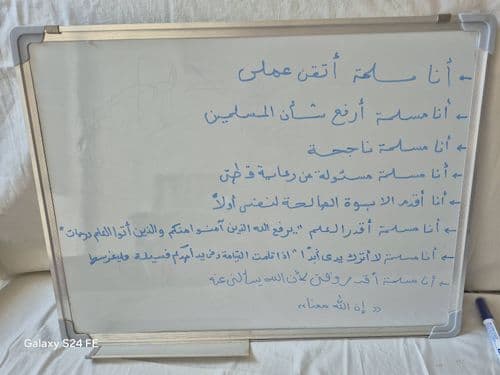 ← أنا مسلمة أتقن عملى
← أنا مسلمة أرفع شأن المسلمين
← أنا مسلمة ناجحة
← أنا مسلمة مسئولة عن رعاية قطتى
← أنا أقدم الاسوة الصالحة لنفسى أولاً
← أنا مسلمة أقدر العلم "يرفع الله الذين آمنوا منكم والذين أتوا العلم درجات"
← أنا مسلمة لا أترك يدى أبداً "اذا قامت القيامة وفى يد أحدكم فسيلة فليغرسها
← أنا مسلمة أقدر وقتى لأن الله يسألنى عنه
"إن الله معنا"
Galaxy S24 FE